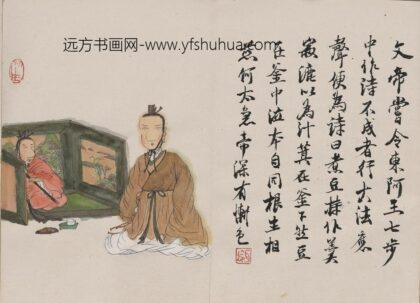 远方书画网-www.yfshuhua.com
文帝嘗令東阿王七步
中作詩不成者行大法應
聲便為詩曰煮豆持作羹
漉以為汁萁在釜下然豆
在釜中泣本自同根生相
煎何太急帝深有慚色